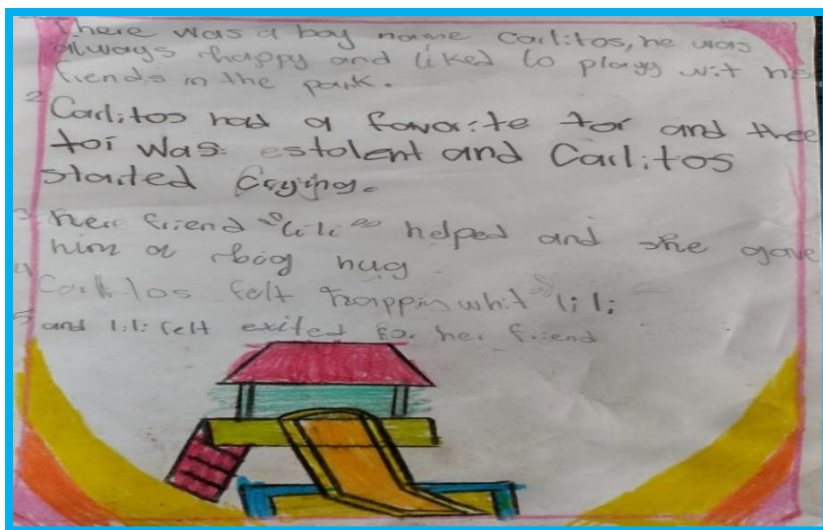 There was a boy name Carlitos, he was
always happy and liked to playy wit he
fiends in the park.
2 Carlitos had a favorite toi and thee
toi was estolent and Carlitos
started Crying.
3 her friend "lili" helped and she gave
him a big hug
4 felt whit "lili
5 and lili felt exited for her friend